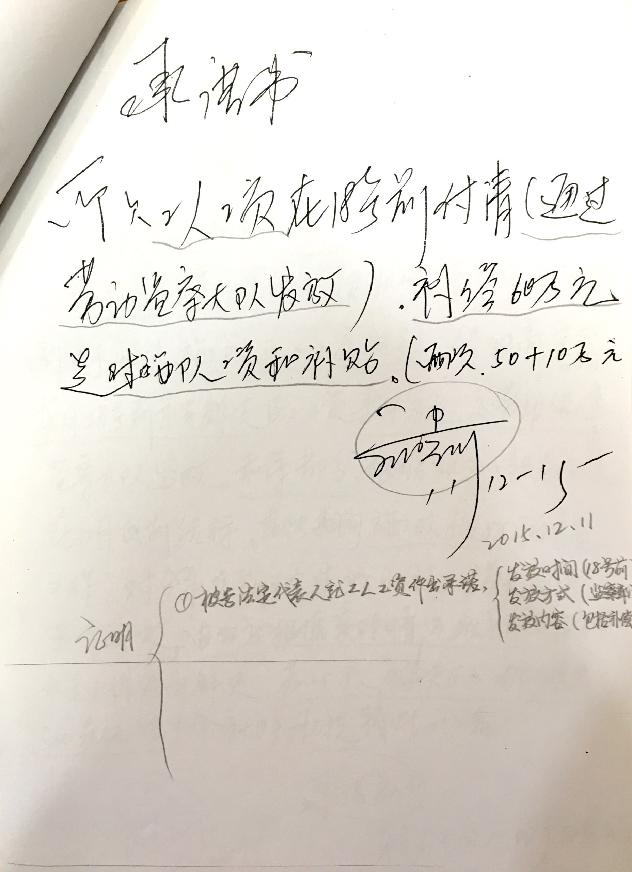 承诺书
所欠工人工资在18号前付清(通过
劳动监察大队发放).补给60万元
是时班队工资和补贴。(两次.50+10万元
12-15
2015.12.11
证明
①被告法定代表人就工人工资作出承诺、
发放时间(18号前
发放方式(监察部
发放内容(包括补贴